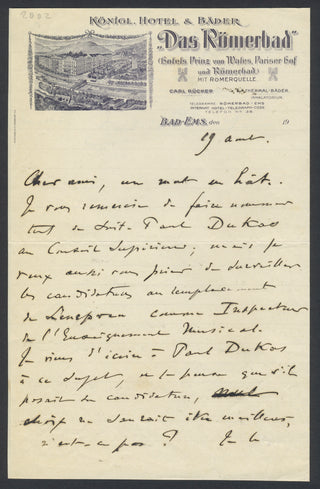 2002
KÖNIGL. HOTEL & BÄDER
„Das Römerbad"
(Hotels Prinz von Wales, Pariser Hof
und Römerbad)
MIT RÖMERQUELLE.
CARL RÜCKER
THERMAL-BÄDER.
INHALATORIUM
TELEGRAMME: RÖMERBAD-EMS
INTERNAT. HOTEL-TELEGRAPH-CODE
TELEFON Nº 28
BAD-EMS, den 19
29 aout.
Cher ami, un mot en hâte.
Je vous remercie de faire nommer
tout de suite Paul Dukas
au Conseil Supérieur, mais je
veux aussi vous prier de surveiller
les candidatures au remplacement
de Lenepveu comme Inspecteur
de l'Enseignement Musical.
Je viens d'écrire à Paul Dukas
à ce sujet, et je pense que s'il
posait sa candidature, nul
choix ne saurait être meilleur,
n'est-ce pas ? Je le